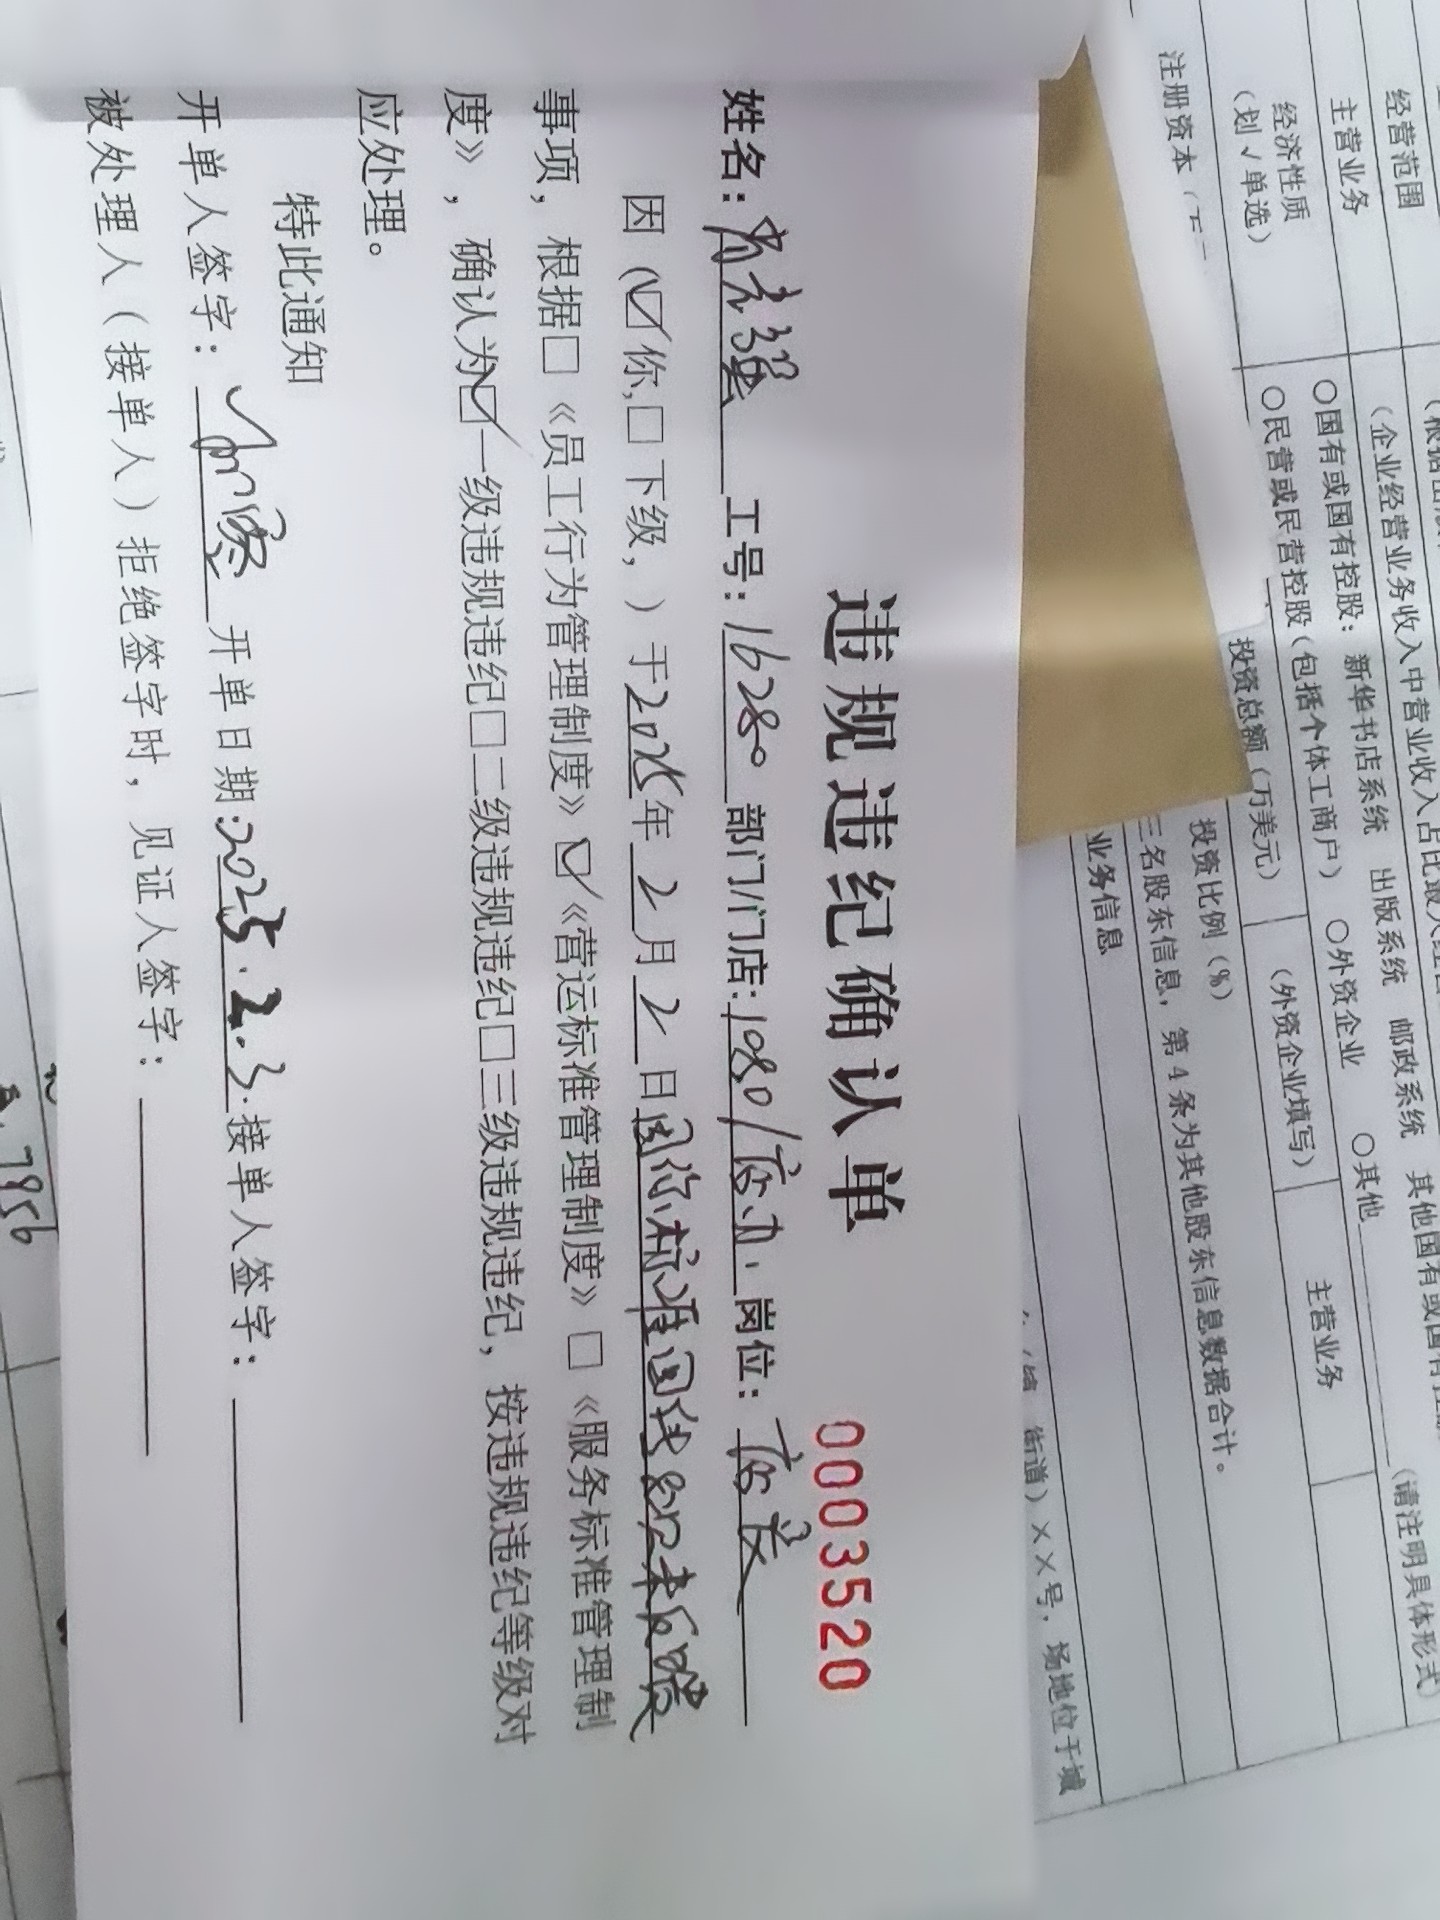 违规违纪确认单
0003520
姓名： 工号：16280 部门/门店:1080/店办 岗位：店长
因（☑你,□下级，）于2025年2月2日因你标准回线
事项，根据□《员工行为管理制度》☑《营运标准管理制度》□《服务标准管理制
度》，确认为☑一级违规违纪□二级违规违纪□三级违规违纪，按违规违纪等级对
应处理。
特此通知
开单人签字： 开单日期:2025.2.3.接单人签字：
被处理人（接单人）拒绝签字时，见证人签字：
经营范围
主营业务
(企业经营业务收入中营业收入占比最大
经济性质
(划√单选)
○国有或国有控股：新华书店系统 出版系统 邮政系统 其他国有或国有
○民营或民营控股(包括个体工商户) ○外资企业 ○其他 (请注明具体形式)
注册资本
投资总额(万美元)
(外资企业填写)
主营业务
投资比例(%)
三名股东信息，第4条为其他股东信息数据合计。
业务信息
街道)××号，场地位于城
7956